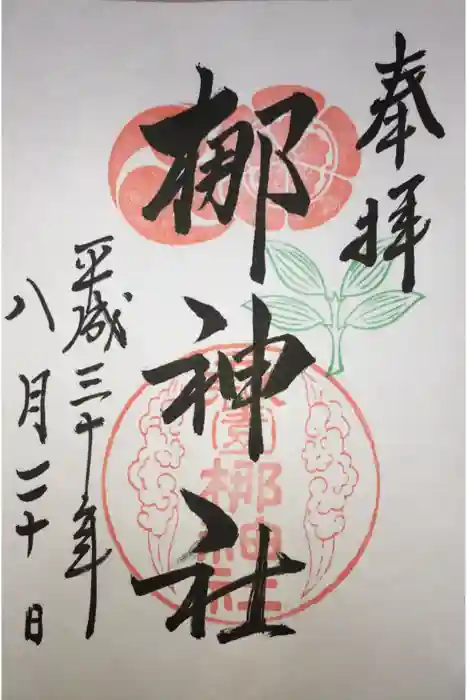 奉拝
梛神社
平成三十年
八月二十日
園
梛神社